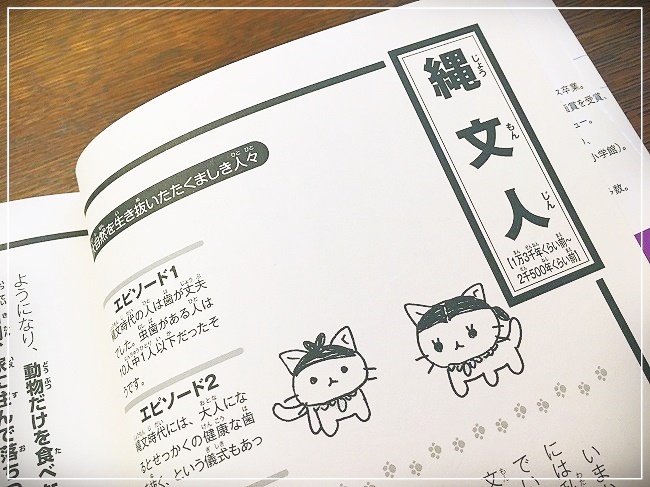 縄文人
【1万3千年くらい前〜
2千500年くらい前】
自然を生き抜いたたくましき人々
エピソード1
縄文時代の人は歯が丈夫
でした。虫歯がある人は
10人中1人以下だったそ
うです。
エピソード2
縄文時代には、大人にな
るとせっかくの健康な歯
を抜く、という儀式もあっ
ようになり、動物だけを食べ
ス卒業。
賞を受賞、
ュー。
小学館)。
数。